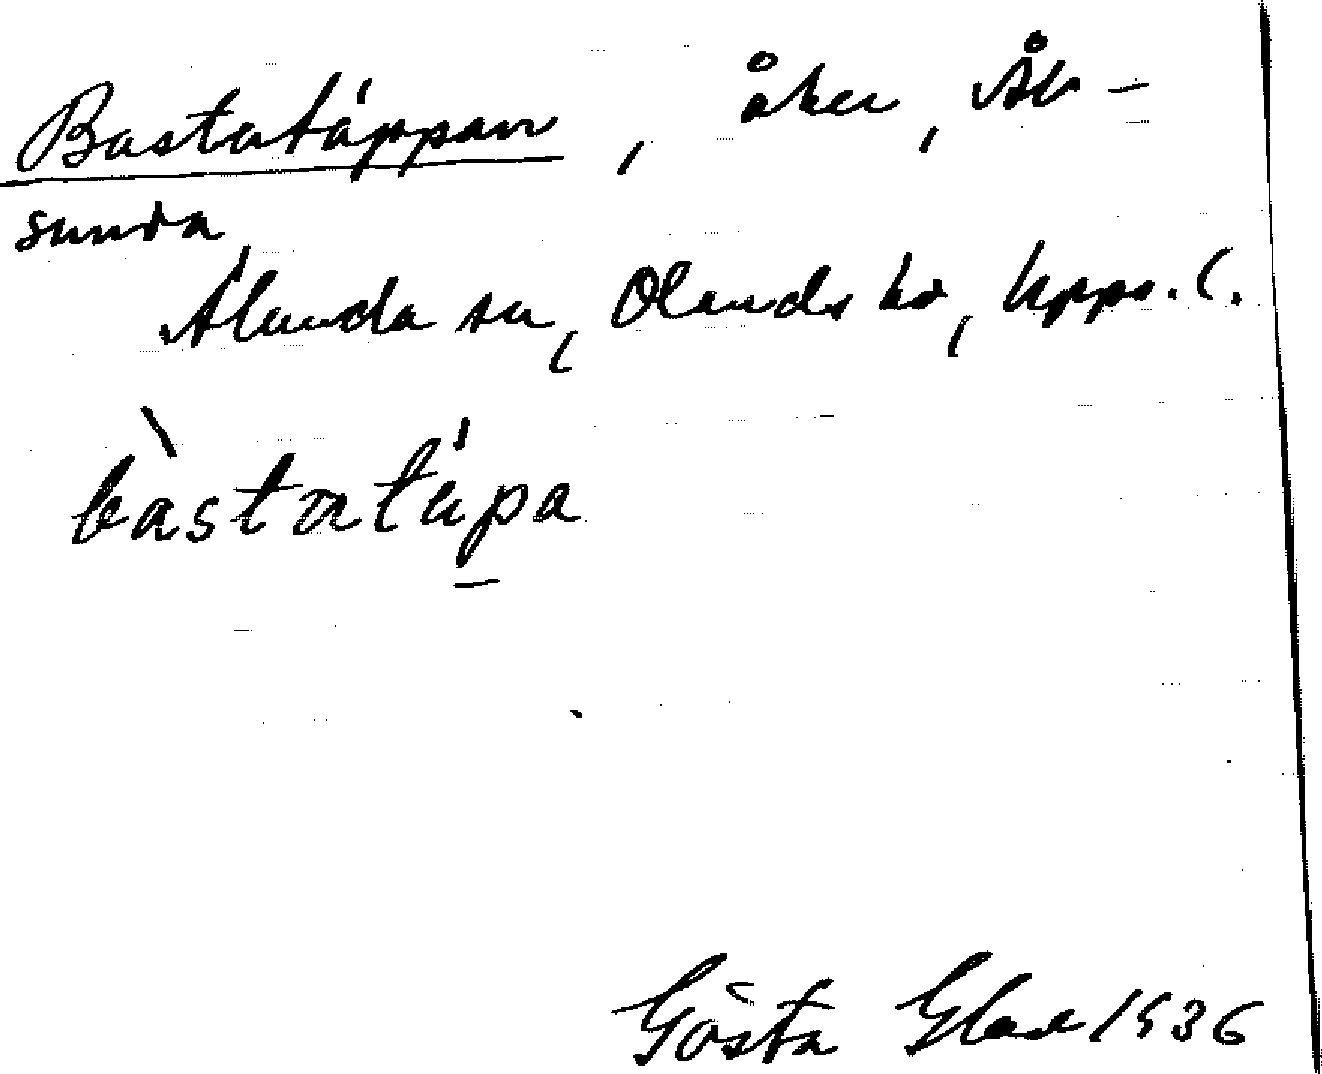 Bastatäppan, åker, Åb-
sunda
Alunda sn, Olands hd, Upps. l.
bàstatä́pa
Gösta Glad 1936